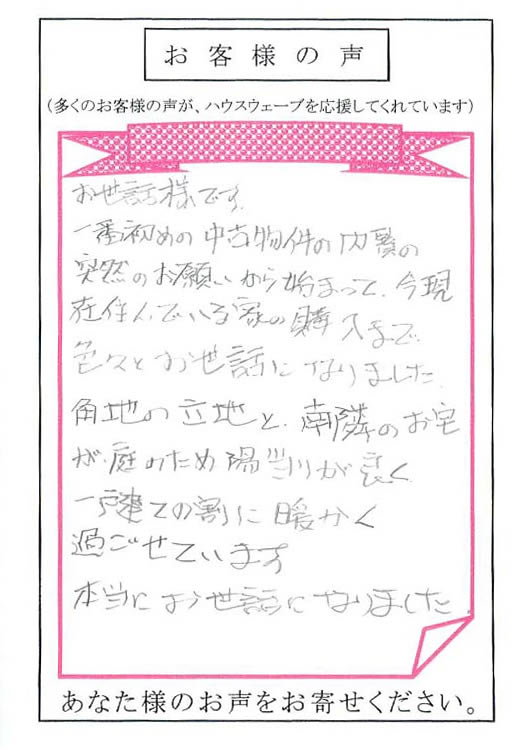 お客様の声
(多くのお客様の声が、ハウスウェーブを応援してくれています)
お世話様です.
一番初めの中古物件の内覧の
突然のお願いから始まって、今現
在住んでいる家の購入まで
色々とお世話になりました.
角地の立地と、南隣のお宅
が庭のため陽当りが良く
一戸建ての割に暖かく
過ごせています
本当にお世話になりました.
あなた様のお声をお寄せください。